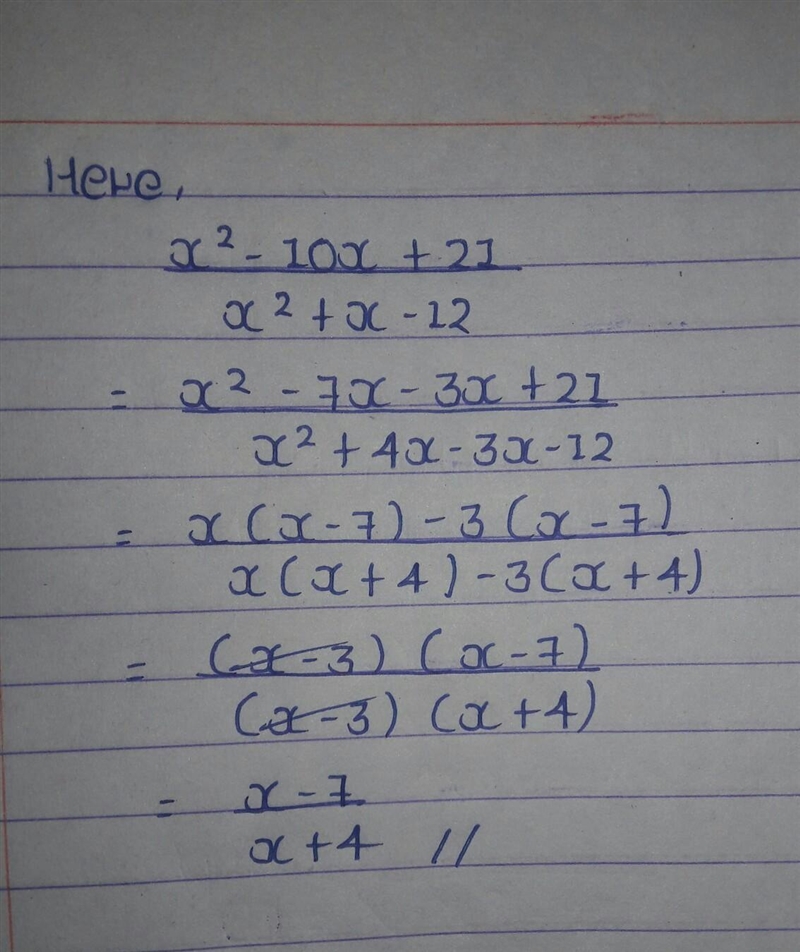 Here,
x² - 10x + 21
x² + x - 12
= x² - 7x - 3x + 21
x² + 4x - 3x - 12
= x(x - 7) - 3(x - 7)
x(x + 4) - 3(x + 4)
= (x - 3) (x - 7)
(x - 3) (x + 4)
= x - 7
x + 4 //